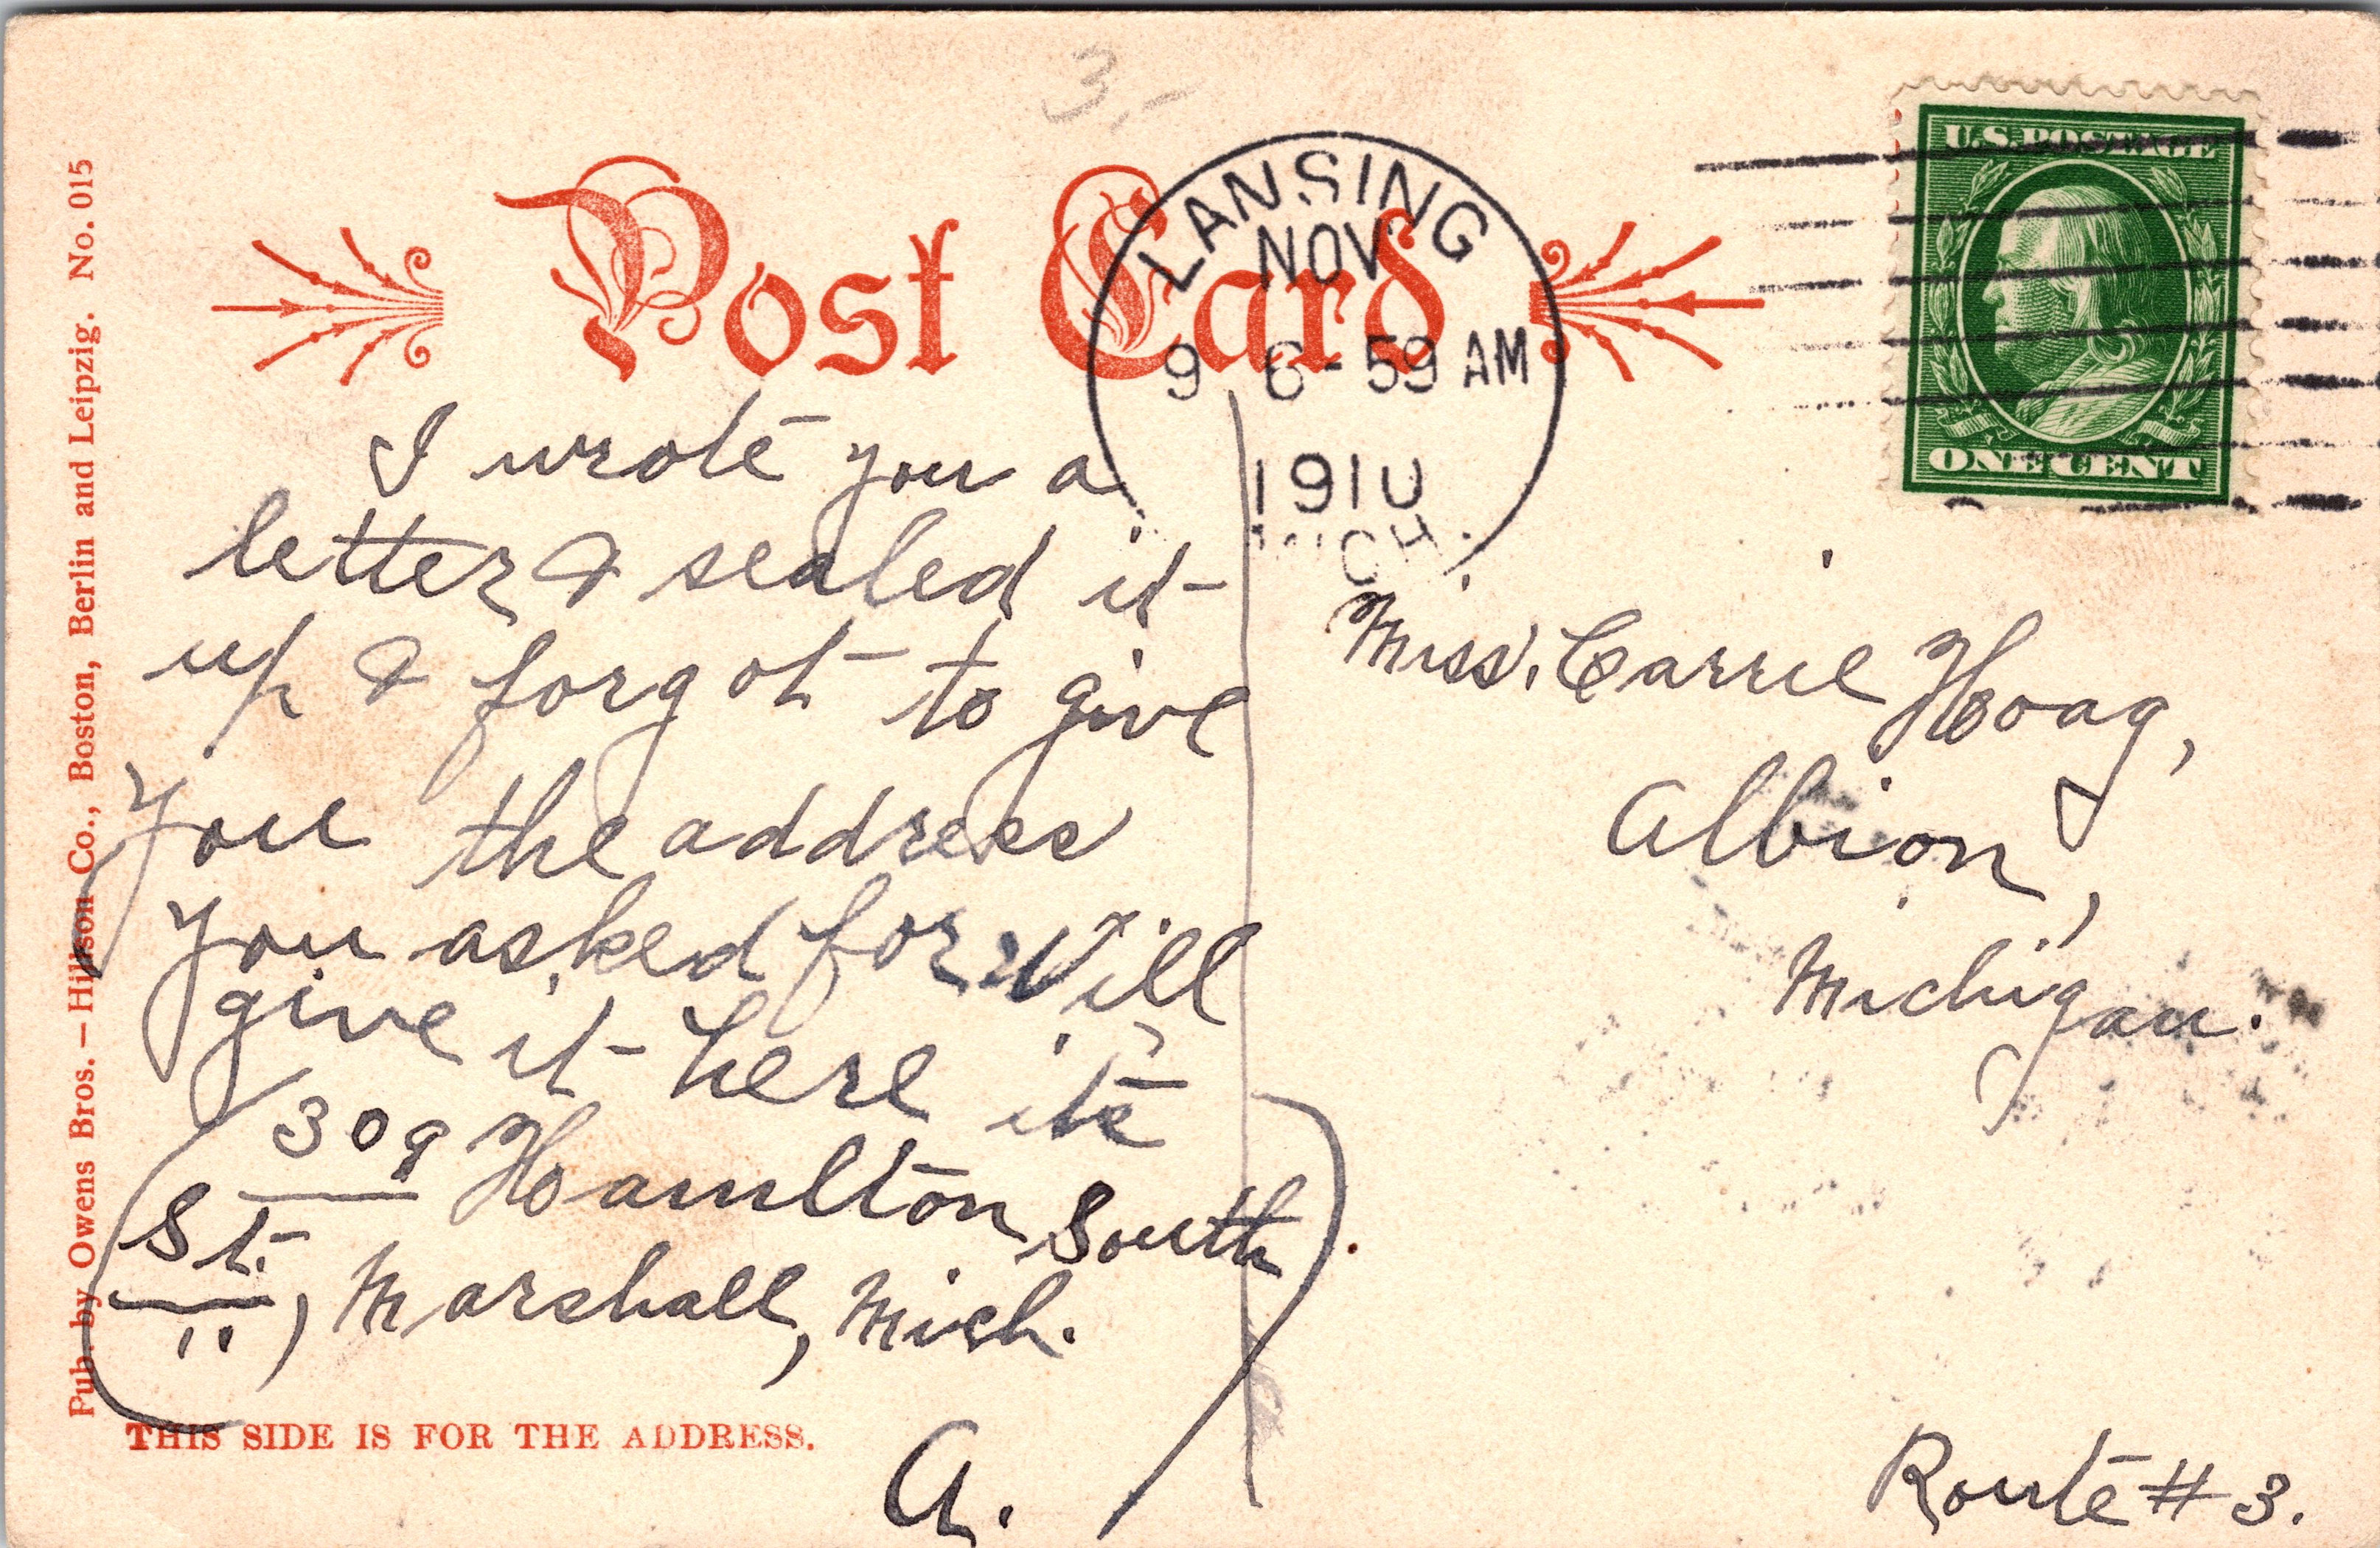 3,-
Post Card
LANSING
NOV
9 6-59 AM
1910
MICH.
U.S. POSTAGE
ONE CENT
Pub. by Owens Bros.—Hillson Co., Boston, Berlin and Leipzig. No. 015
I wrote you a
letter & sealed it
up & forgot to give
you the address
you asked for will
give it here its
309 Hamilton South
St., Marshall, Mich.
A.
THIS SIDE IS FOR THE ADDRESS.
Miss. Carrie Hoag,
Albion,
Michigan.
Route # 3.